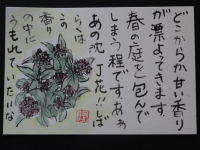 どこからか甘い香り
が漂よってきます。
春の庭を包んで
しまう程です。あゝ
あの沈丁花!!しば
らくは
この
香り
の中に
うもれていたいな!